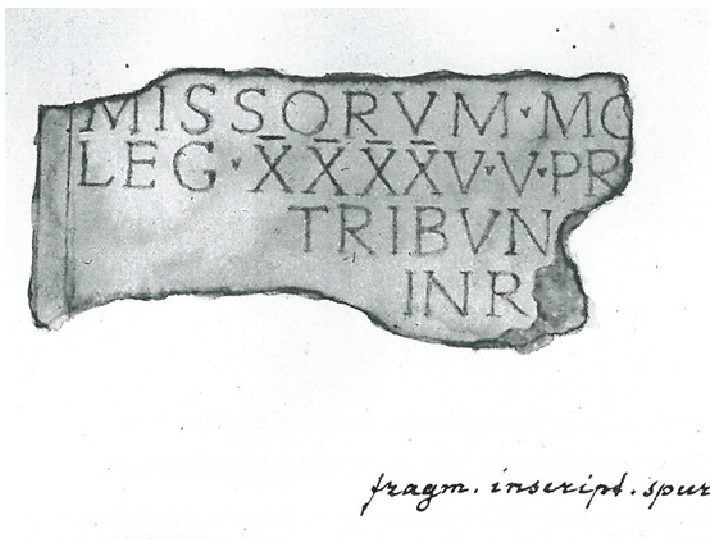 MISSORVM·MO
LEG·X̅X̅X̅X̅V·V·PR
TRIBVN
INR
fragm. inscript. spur